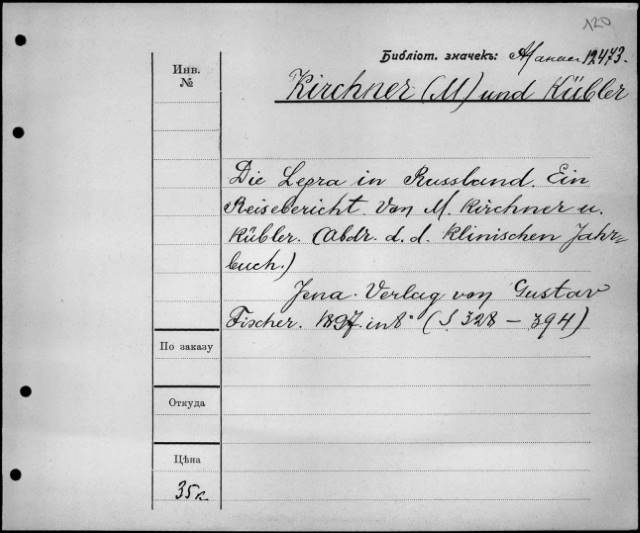 120
Библіот. значекъ: 12473.
Инв.
№
Kirchner (M) und Kübler
Die Lepra in Russland. Ein
Reisebericht. Von M. Kirchner u.
Kübler. (Abdr. d. d. Klinischen Jahr=
buch.)
Jena. Verlag von Gustav
Fischer. 1897. in 8° (S. 328 – 394)
По заказу
Откуда
Цѣна
35к